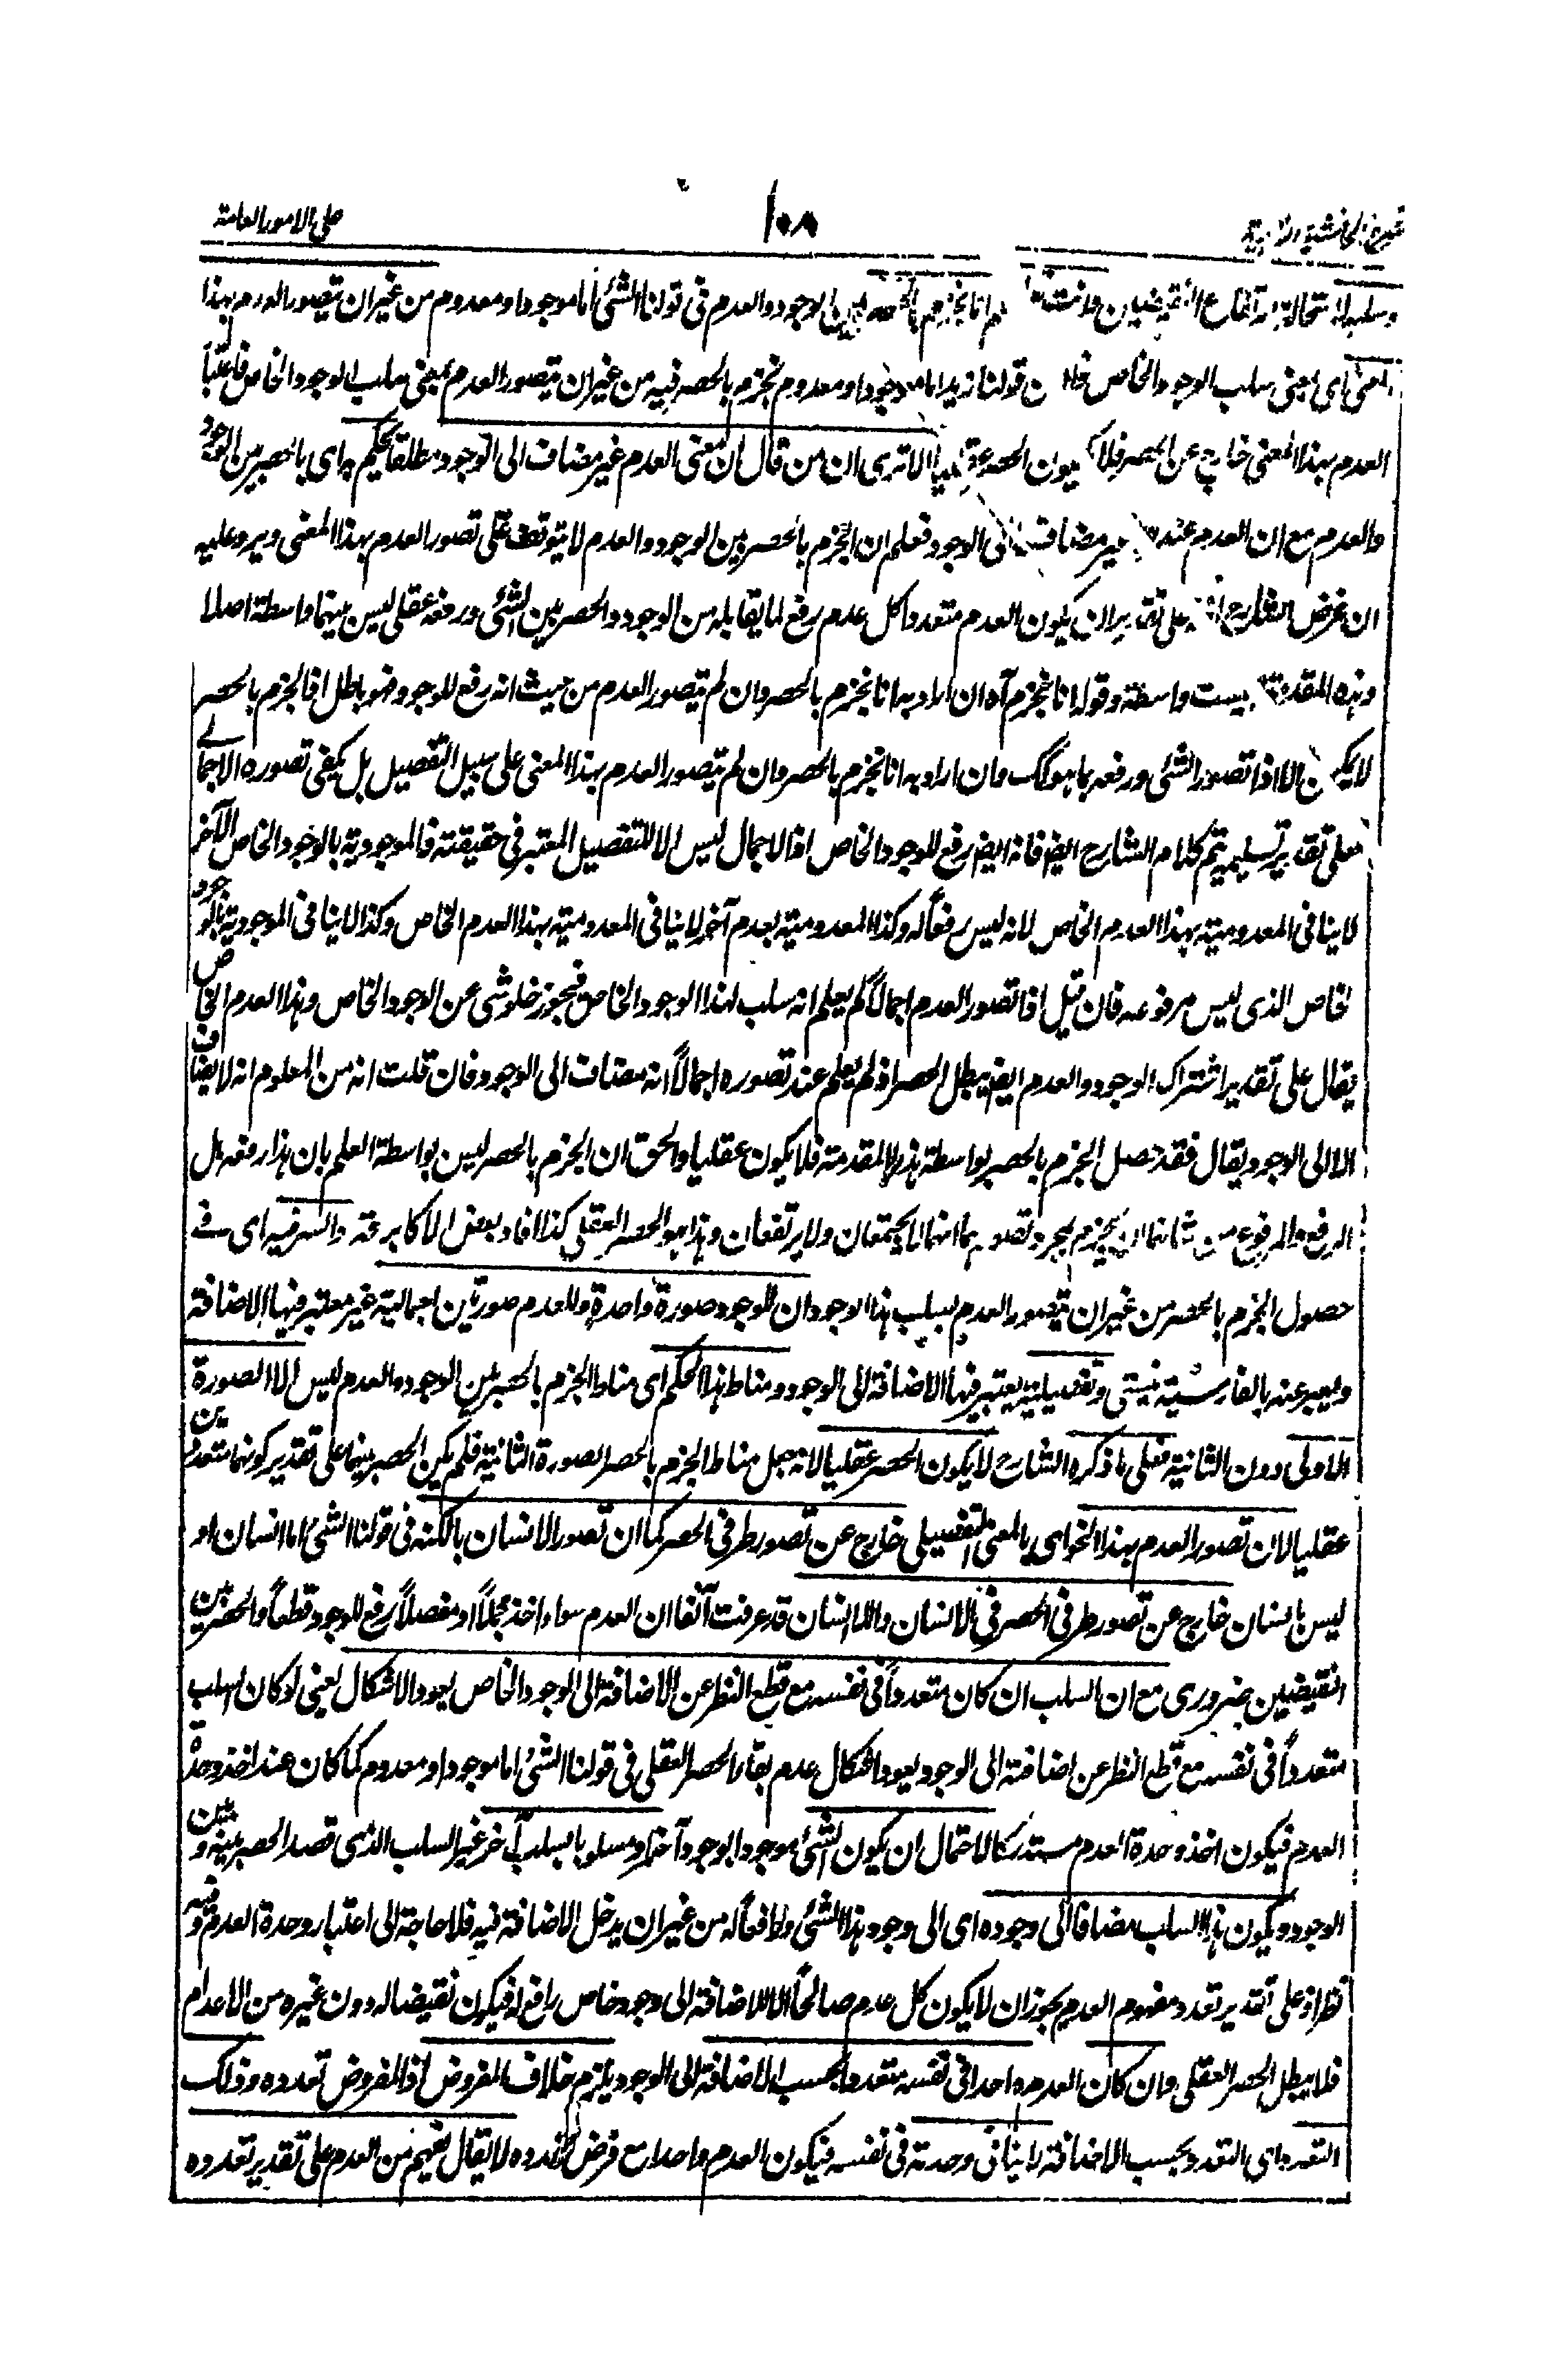 على الامور العامة
١٠٨
وسلبه لاستحالة اجتماع النقيضين نجزم بالحصر بين الوجود والعدم فى قولنا الشئ اما موجود او معدوم من غير ان يتصور العدم بهذا
المعنى اى بمعنى سلب الوجود الخاص قولنا زيد اما موجود او معدوم نجزم بالحصر فيه من غير ان يتصور العدم بمعنى سلب الوجود الخاص فاعتبار
العدم بهذا المعنى خارج عن الحصر فلا يكون الحصر عقليا الا ترى ان من قال ان معنى العدم غير مضاف الى الوجود مطلقا يحكم به اى بالحصر بين الوجود
والعدم مع ان العدم عنده غير مضاف الى الوجود فعلم ان الجزم بالحصر بين الوجود والعدم لا يتوقف على تصور العدم بهذا المعنى ويرد عليه
ان غرض الشارح انه على تقدير ان يكون العدم متعددا كل عدم رفع لما يقابله من الوجود والحصر بين الشئ ورفعه عقلى ليس بينهما واسطة اصلا
وهذه المقدمة ليست واسطة وقوله انا نجزم آه ان اراد به انا نجزم بالحصر وان لم يتصور العدم من حيث انه رفع للوجود فهو باطل اذ الجزم بالحصر
لا يمكن الا اذا تصور الشئ ورفعه بما هو كك وان اراد به انا نجزم بالحصر وان لم يتصور العدم بهذا المعنى على سبيل التفصيل بل يكفى تصوره الاجمالے
فعلى تقدير تسليمه يتم كلام الشارح ايضا فانه ايضا رفع للوجود الخاص اذ الاجمال ليس الا للتفصيل المعتبر فى حقيقته فالموجودية بالوجود الخاص الآخر
لا ينافى المعدومية بهذا العدم الخاص لانه ليس رفعا له وكذا المعدومية بعدم آخر لا ينافى المعدومية بهذا العدم الخاص وكذا لا ينافى الموجودية بالوجود
الخاص الذى ليس مرفوعه فان قيل اذا تصور العدم اجمالا لم يعلم انه سلب لهذا الوجود الخاص فيجوز خلو شئ عن الوجود الخاص وهذا العدم الخاص
يقال على تقدير اشتراك الوجود والعدم ايضا يبطل الحصر اذ لم يعلم عند تصوره اجمالا انه مضاف الى الوجود فان قلت انه من المعلوم انه لا يضاف
الا الى الوجود يقال فقد حصل الجزم بالحصر بواسطة هذه المقدمة فلا يكون عقليا والحق ان الجزم بالحصر ليس بواسطة العلم بان هذا رفعه بل
الرفع والمرفوع من شانهما ان يجزم بمجرد تصورهما انهما لا يجتمعان ولا يرتفعان وهذا هو الحصر العقلى كذا افاد بعض الاكابر قه والسر فيه اى فے
حصول الجزم بالحصر من غير ان يتصور العدم بسلب هذا الوجود ان للوجود صورة واحدة وللعدم صورتين اجمالية غير معتبر فيها الاضافة
ويعبر عنه بالفارسية نيستى وتفصيلية يعتبر فيها الاضافة الى الوجود ومناط هذا الحكم اى مناط الجزم بالحصر بين الوجود والعدم ليس الا الصورة
الاولى دون الثانية فعلى ما ذكره الشارح لا يكون الحصر عقليا لانه جعل مناط الجزم بالحصر الصورة الثانية فلم يكن الحصر بينهما على تقدير كونهما متعددين
عقليا لان تصور العدم بهذا النحو اى بالمعنى التفصيلى خارج عن تصور طرفى الحصر كما ان تصور الانسان بالكنه فى قولنا الشئ اما انسان او
ليس بانسان خارج عن تصور طرفى الحصر فى الانسان واللا انسان قد عرفت آنفا ان العدم سواء اخذ مجملا او مفصلا رفع للوجود قطعا والحصر بين
النقيضين ضرورى مع ان السلب ان كان متعددا فى نفسه مع قطع النظر عن الاضافة الى الوجود الخاص يعود الاشكال يعنى لو كان السلب
متعددا فى نفسه مع قطع النظر عن اضافته الى الوجود يعود اشكال عدم بقاء الحصر العقلى فى قولنا الشئ اما موجود او معدوم كما كان عند اخذ وحدة
العدم فيكون اخذ وحدة العدم مستدركا لاحتمال ان يكون الشئ موجودا بوجود آخر او مسلوبا بسلب آخر غير السلب الذى قصد الحصر بينه وبين
الوجود ويكون هذا السلب مضافا الى وجوده اى الى وجود هذا الشئ ورافعا له من غير ان يدخل الاضافة فيه فلا حاجة الى اعتبار وحدة العدم وفيه
نظر اذ على تقدير تعدد مفهوم العدم يجوز ان لا يكون كل عدم صالحا الا للاضافة الى وجود خاص رافع له فيكون نقيضا له دون غيره من الاعدام
فلا يبطل الحصر العقلى وان كان العدم واحدا فى نفسه متعددا بحسب الاضافة الى الوجود يلزم خلاف المفروض اذ المفروض تعدده وذلك
التعدد اى التعدد بحسب الاضافة لا ينافى وحدته فى نفسه فيكون العدم واحدا مع فرض تعدده لا يقال يفهم من العدم على تقدير تعدده